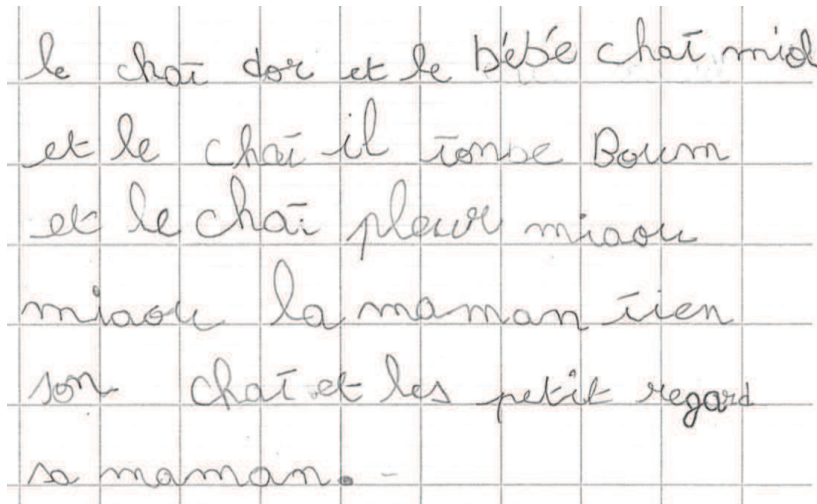 le chat dor et le bébé chat miol
et le chat il tonbe Boum
et le chat pleur miaou
miaou la maman tien
son chat et les petit regard
sa maman.